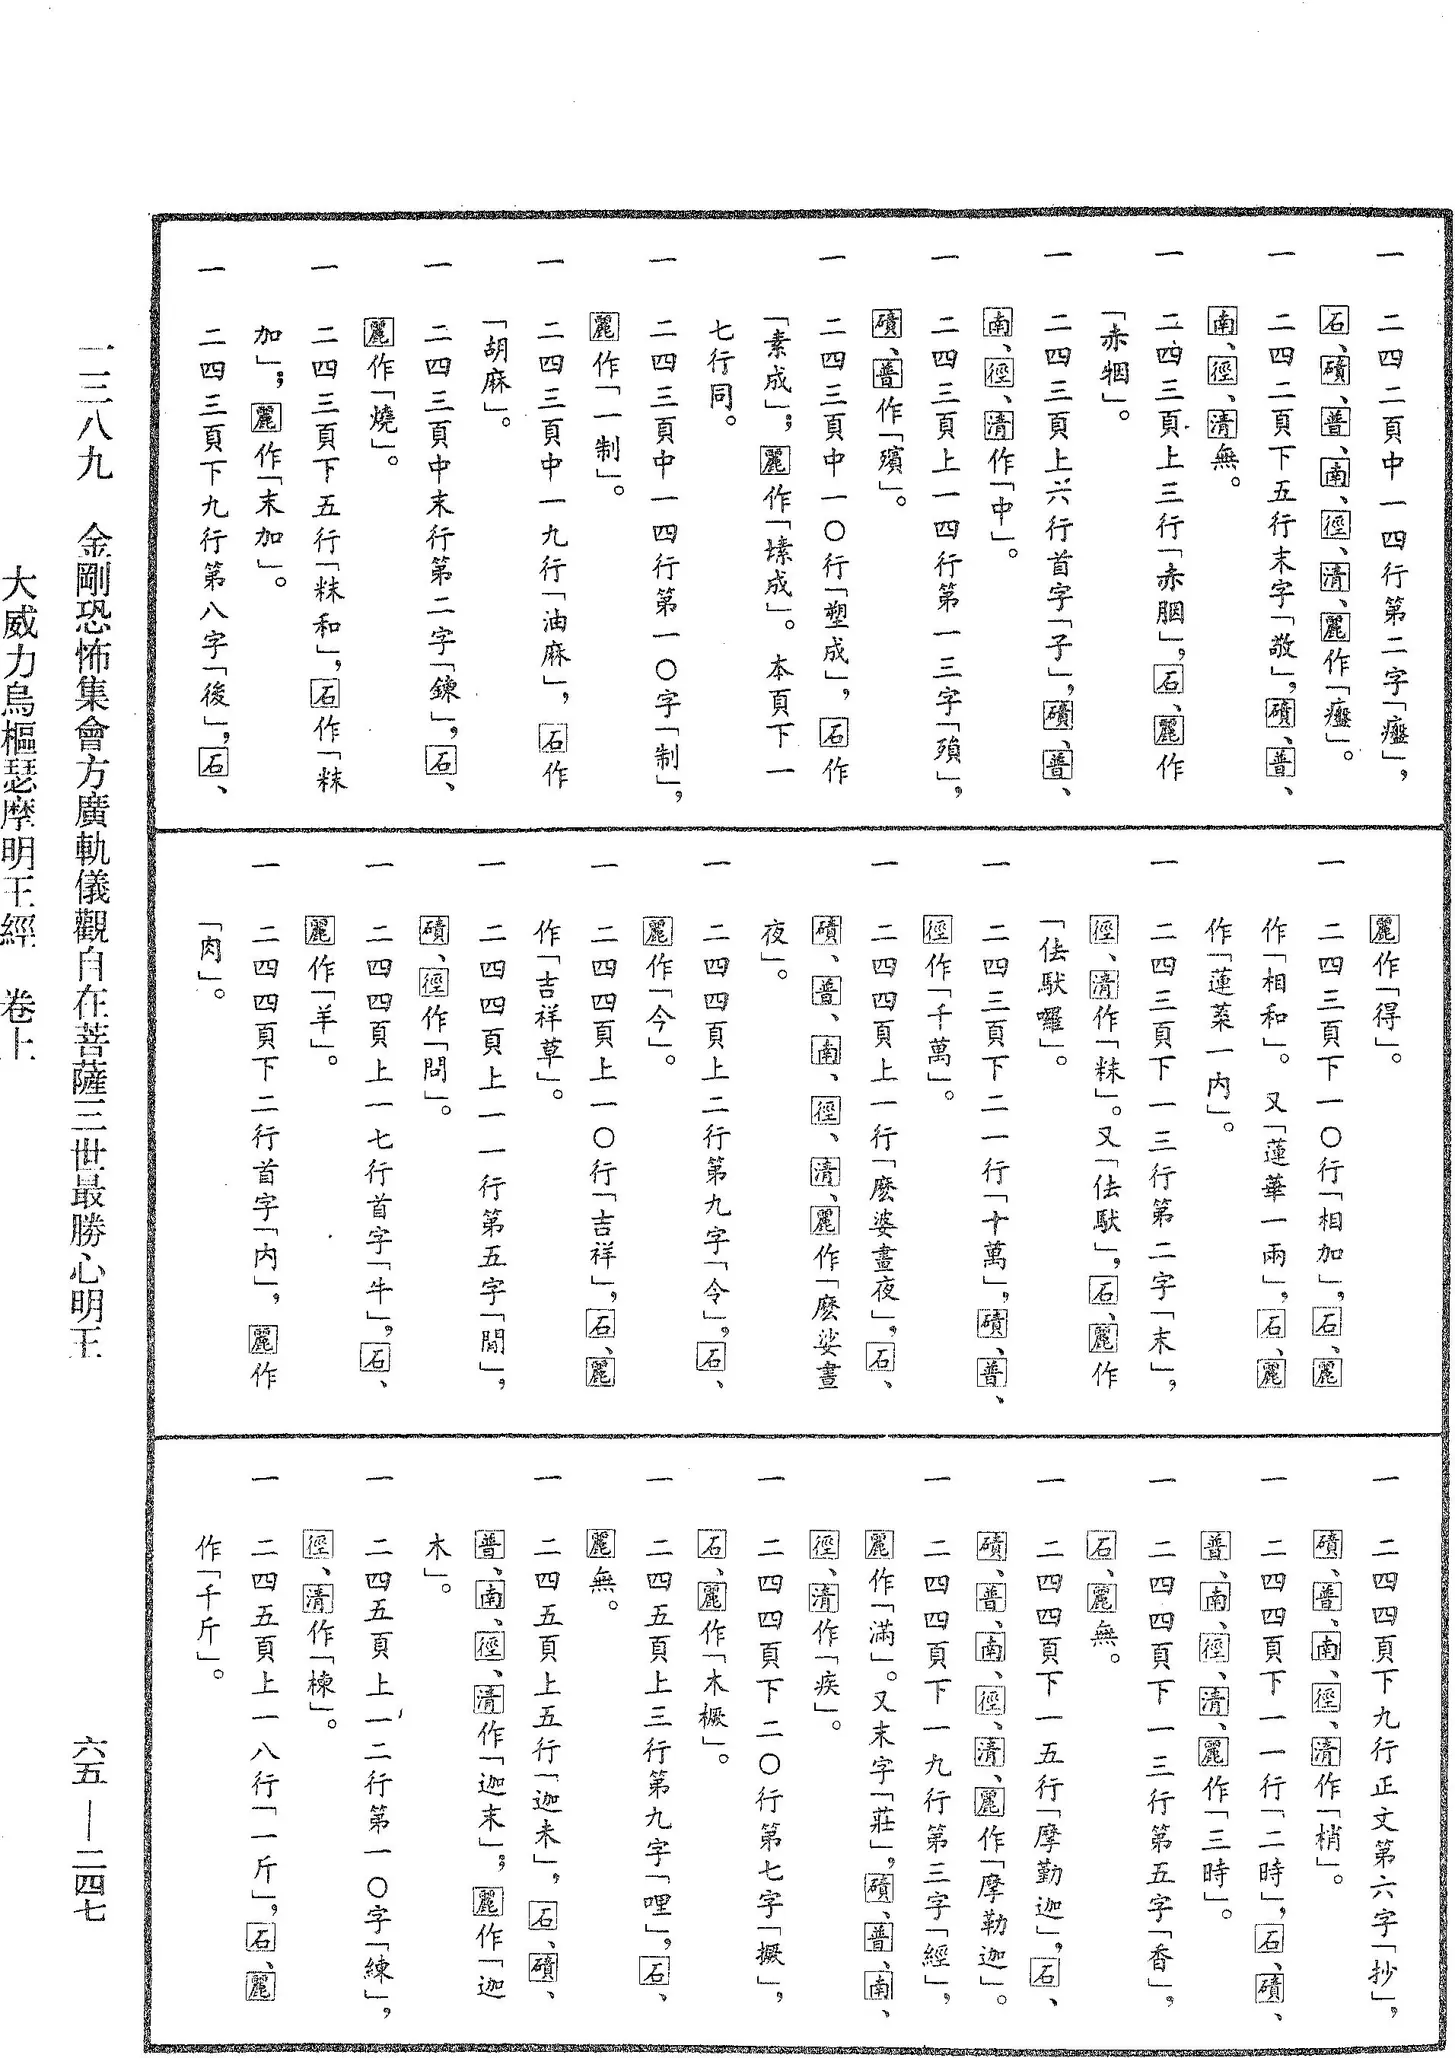 一 二四二頁中一四行第二字「癦」，
石、磧、普、南、徑、清、麗作「癦」。
一 二四二頁下五行末字「敬」，磧、普、
南、徑、清無。
一 二四三頁上三行「赤胭」，石、麗作
「赤㸶」。
一 二四三頁上六行首字「子」，磧、普、
南、徑、清作「中」。
一 二四三頁上一四行第一三字「殞」，
磧、普作「殯」。
一 二四三頁中一〇行「塑成」，石作
「素成」；麗作「塐成」。本頁下一
七行同。
一 二四三頁中一四行第一〇字「制」，
麗作「一制」。
一 二四三頁中一九行「油麻」，石作
「胡麻」。
一 二四三頁中末行第二字「鍊」，石、
麗作「燒」。
一 二四三頁下五行「粖和」，石作「粖
加」；麗作「末加」。
一 二四三頁下九行第八字「後」，石、
麗作「得」。
一 二四三頁下一〇行「相加」，石、麗
作「相和」。又「蓮華一兩」，石、麗
作「蓮蘂一內」。
一 二四三頁下一三行第二字「末」，
徑、清作「粖」。又「佉馱」，石、麗作
「佉馱囉」。
一 二四三頁下二一行「十萬」，磧、普、
徑作「千萬」。
一 二四四頁上一行「麽婆晝夜」，石、
磧、普、南、徑、清、麗作「麽娑晝
夜」。
一 二四四頁上二行第九字「令」，石、
麗作「今」。
一 二四四頁上一〇行「吉祥」，石、麗
作「吉祥草」。
一 二四四頁上一一行第五字「閒」，
磧、徑作「問」。
一 二四四頁上一七行首字「牛」，石、
麗作「羊」。
一 二四四頁下二行首字「內」，麗作
「肉」。
一 二四四頁下九行正文第六字「抄」，
磧、普、南、徑、清作「梢」。
一 二四四頁下一一行「二時」，石、磧、
普、南、徑、清、麗作「三時」。
一 二四四頁下一三行第五字「香」，
石、麗無。
一 二四四頁下一五行「摩勤迦」，石、
磧、普、南、徑、清、麗作「摩勒迦」。
一 二四四頁下一九行第三字「經」，
麗作「滿」。又末字「莊」，磧、普、南、
徑、清作「疾」。
一 二四四頁下二〇行第七字「撅」，
石、麗作「木橛」。
一 二四五頁上三行第九字「哩」，石、
麗無。
一 二四五頁上五行「迦未」，石、磧、
普、南、徑、清作「迦末」；麗作「迦
木」。
一 二四五頁上一二行第一〇字「練」，
徑、清作「棟」。
一 二四五頁上一八行「一斤」，石、麗
作「千斤」。
一三八九 金剛恐怖集會方廣軌儀觀自在菩薩三世最勝心明王 六五—二四七
大威力烏樞瑟摩明王經 卷上